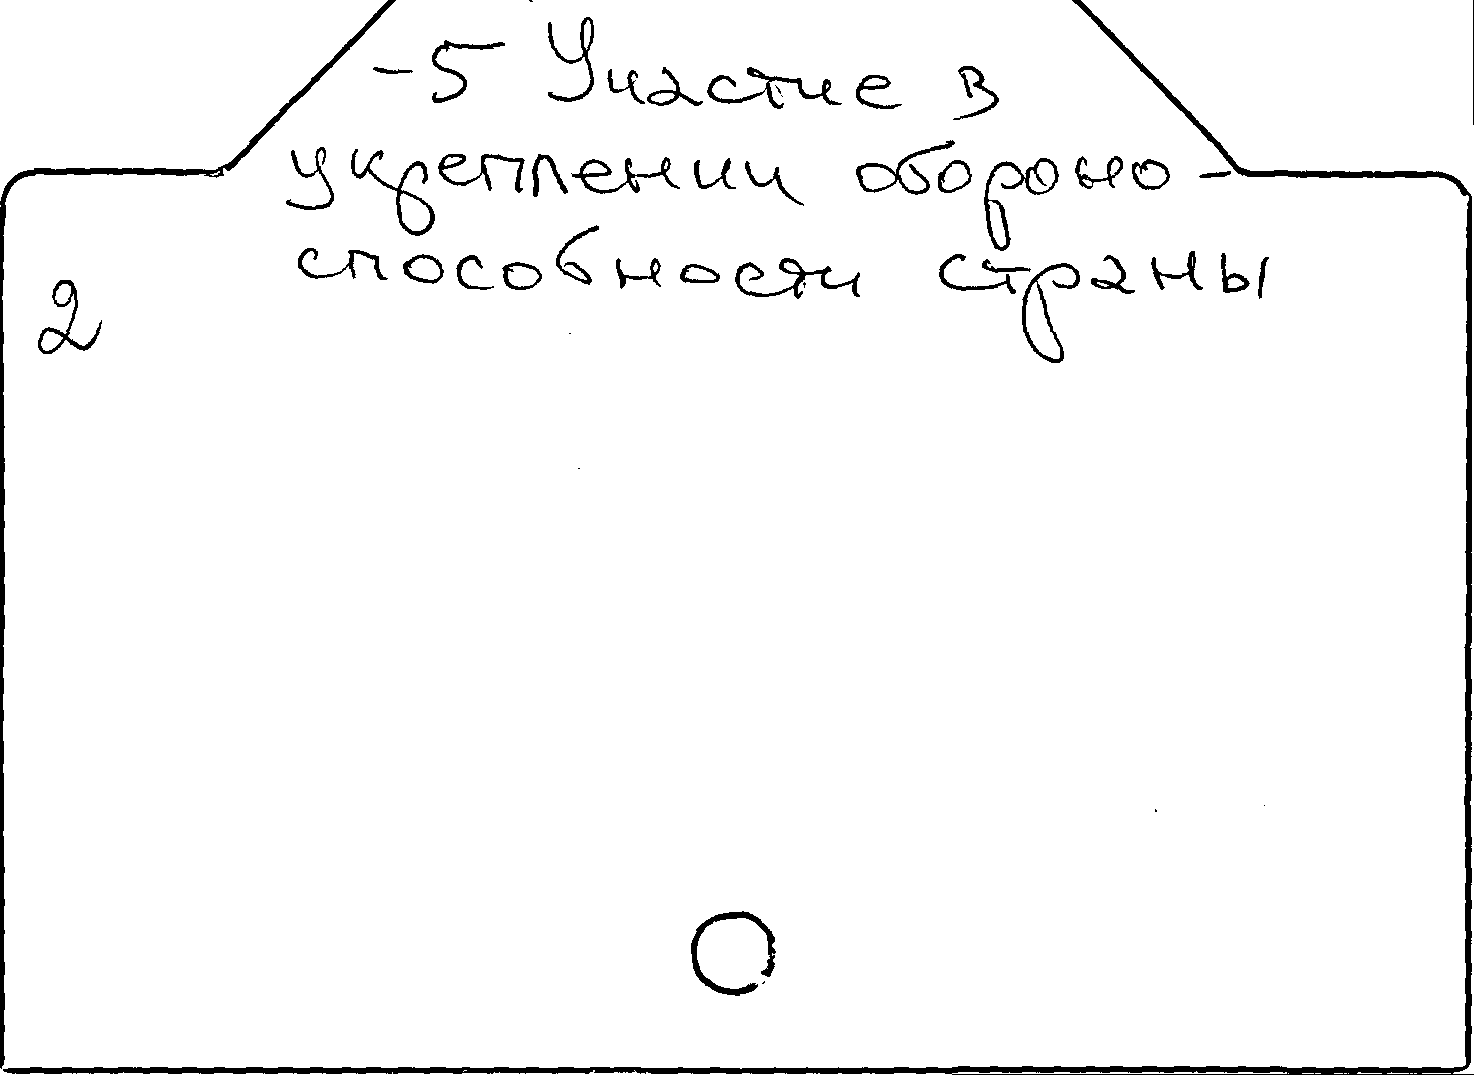 -5 Участие в
укреплении обороно-
способности страны
2